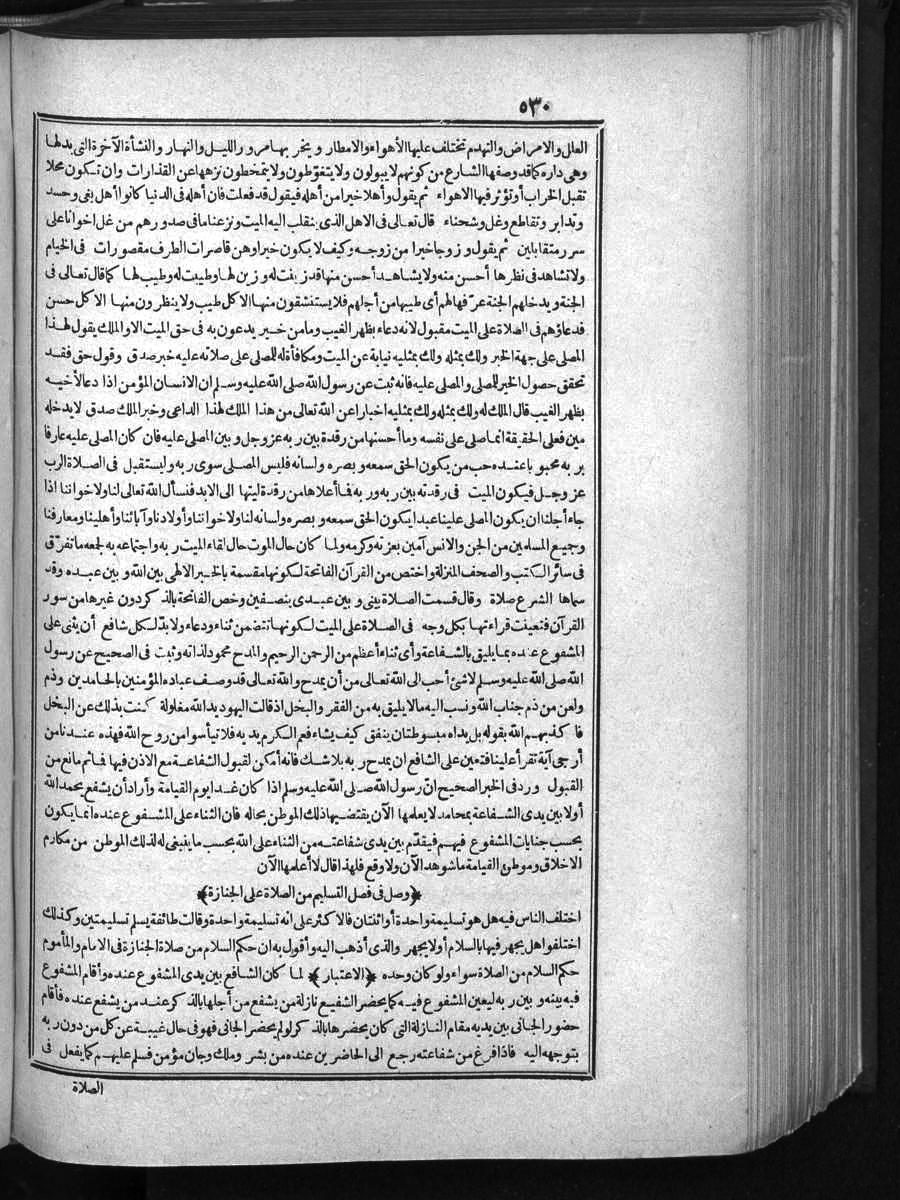 ٥٣٠
العلل والامراض والتهدم تختلف عليها الأهواء والامطار ويخر بها مرور الليل والنهار والنشأة الآخرة التى بدلها
وهى داره كما قد وصفها الشارع من كونهم لا يبولون ولا يتغوّطون ولا يتمخطون نزهها عن القذارات وان تكون محلا
تقبل الخراب أو تؤثر فيها الاهواء ثم يقول وأهلا خيرا من أهله فيقول قد فعلت فان أهله فى الدنيا كانوا أهل بغى وحسد
وتدابر وتقاطع وغل وشحناء قال تعالى فى الاهل الذى ينقلب اليه الميت ونزعنا ما فى صدورهم من غل اخوانا على
سرر متقابلين ثم يقول وزوجا خيرا من زوجه وكيف لا يكون خيرا وهن قاصرات الطرف مقصورات فى الخيام
ولا تشاهد فى نظرها أحسن منه ولا يشاهد أحسن منها قد زينت له وزين لها وطيبت له وطيب لها كما قال تعالى فى
الجنة ويدخلهم الجنة عرّفها لهم أى طيبها من أجلهم فلا يستنشقون منها الا كل طيب ولا ينظرون منها الا كل حسن
فدعاؤهم فى الصلاة على الميت مقبول لانه دعاء بظهر الغيب وما من خير يدعون به فى حق الميت الا والملك يقول لهذا
المصلى على جهة الخبر ولك بمثله ولك بمثليه نيابة عن الميت ومكافأة له للمصلى على صلاته عليه خبر صدق وقول حق فقد
تحقق حصول الخير للمصلى والمصلى عليه فانه ثبت عن رسول الله صلى الله عليه وسلم ان الانسان المؤمن اذا دعا لأخيه
بظهر الغيب قال الملك له ولك بمثله ولك بمثليه اخبارا عن الله تعالى من هذا الملك لهذا الداعى وخبر الملك صدق لا يدخله
مين فعلى الحقيقة انما صلى على نفسه وما أحسنها من رقدة بين ربه عز وجل وبين المصلى عليه فان كان المصلى عليه عارفا
بربه محبوبا عنده حب من يكون الحق سمعه وبصره ولسانه فليس المصلى سوى ربه وليستقبل فى الصلاة الرب
عز وجل فيكون الميت فى رقدته بين ربه وربه فما أعلاها من رقدة ليتها الى الابد فنسأل الله تعالى لنا ولاخواننا اذا
جاء أجلنا ان يكون المصلى علينا عبدا يكون الحق سمعه وبصره ولسانه لنا ولاخواننا وأولادنا وآبائنا وأهلينا ومعارفنا
وجميع المسلمين من الجن والانس آمين بعزته وكرمه ولما كان حال الموت حال لقاء الميت ربه واجتماعه به لجمعه ما تفرّق
فى سائر الكتب والصحف المنزلة واختص من القرآن الفاتحة لكونها مقسمة بالخبر الالهى بين الله وبين عبده وقد
سماها الشرع صلاة وقال قسمت الصلاة بينى وبين عبدى بنصفين وخص الفاتحة بالذكر دون غيرها من سور
القرآن فتعينت قراءتها بكل وجه فى الصلاة على الميت لكونها تتضمن ثناء ودعاء ولا بدّ لكل شافع أن يثنى على
المشفوع عنده بما يليق بالشفاعة وأى ثناء أعظم من الرحمن الرحيم والمدح محمود لذاته وثبت فى الصحيح عن رسول
الله صلى الله عليه وسلم لا شئ أحب الى الله تعالى من أن يمدح والله تعالى قد وصف عباده المؤمنين بالحامدين وذم
ولعن من ذم جناب الله ونسب اليه ما لا يليق به من الفقر والبخل اذ قالت اليهود يد الله مغلولة كنت بذلك عن البخل
فاكذبهم الله بقوله بل يداه مبسوطتان ينفق كيف يشاء فعم الكرم يديه فلا تيأسوا من روح الله فهذه عندنا من
أرجى آية تقرأ علينا فتعين على الشافع ان يمدح ربه بلا شك فانه أمكن لقبول الشفاعة مع الاذن فيها فما ثم مانع من
القبول ورد فى الخبر الصحيح انّ رسول الله صلى الله عليه وسلم اذا كان غد ايوم القيامة وأراد أن يشفع يحمد الله
أولا بين يدى الشفاعة بمحامد لا يعلمها الآن يقتضيها ذلك الموطن بحاله فان الثناء على المشفوع عنده انما يكون
بحسب جنايات المشفوع فيهم فيقدّم بين يدى شفاعته من الثناء على الله بحسب ما ينبغى له لذلك الموطن من مكارم
الاخلاق وموطن القيامة ما شوهد الآن ولا وقع فلهذا قال لا أعلمها الآن
﴿وصل فى فصل التسليم من الصلاة على الجنازة﴾
اختلف الناس فيه هل هو تسليمة واحدة أو اثنتان فالاكثر على انه تسليمة واحدة وقالت طائفة يسلم تسليمتين وكذلك
اختلفوا هل يجهر فيها بالسلام أولا يجهر والذى أذهب اليه وأقول به ان حكم السلام من صلاة الجنازة فى الامام والمأموم
حكم السلام من الصلاة سواء ولو كان وحده ﴿الاعتبار﴾ لما كان الشافع بين يدى المشفوع عنده وأقام المشفوع
فيه بينه وبين ربه ليعين المشفوع فيه كما يحضر الشفيع نازلة من يشفع من أجلها بالذكر عند من يشفع عنده فأقام
حضور الجانى بين يديه مقام النازلة التى كان يحضرها بالذكر لو لم يحضر الجانى فهو فى حال غيبة عن كل من دون ربه
بتوجهه اليه فاذا فرغ من شفاعته رجع الى الحاضرين عنده من بشر وملك وجان مؤمن فسلم عليهم كما يفعل فى
الصلاة